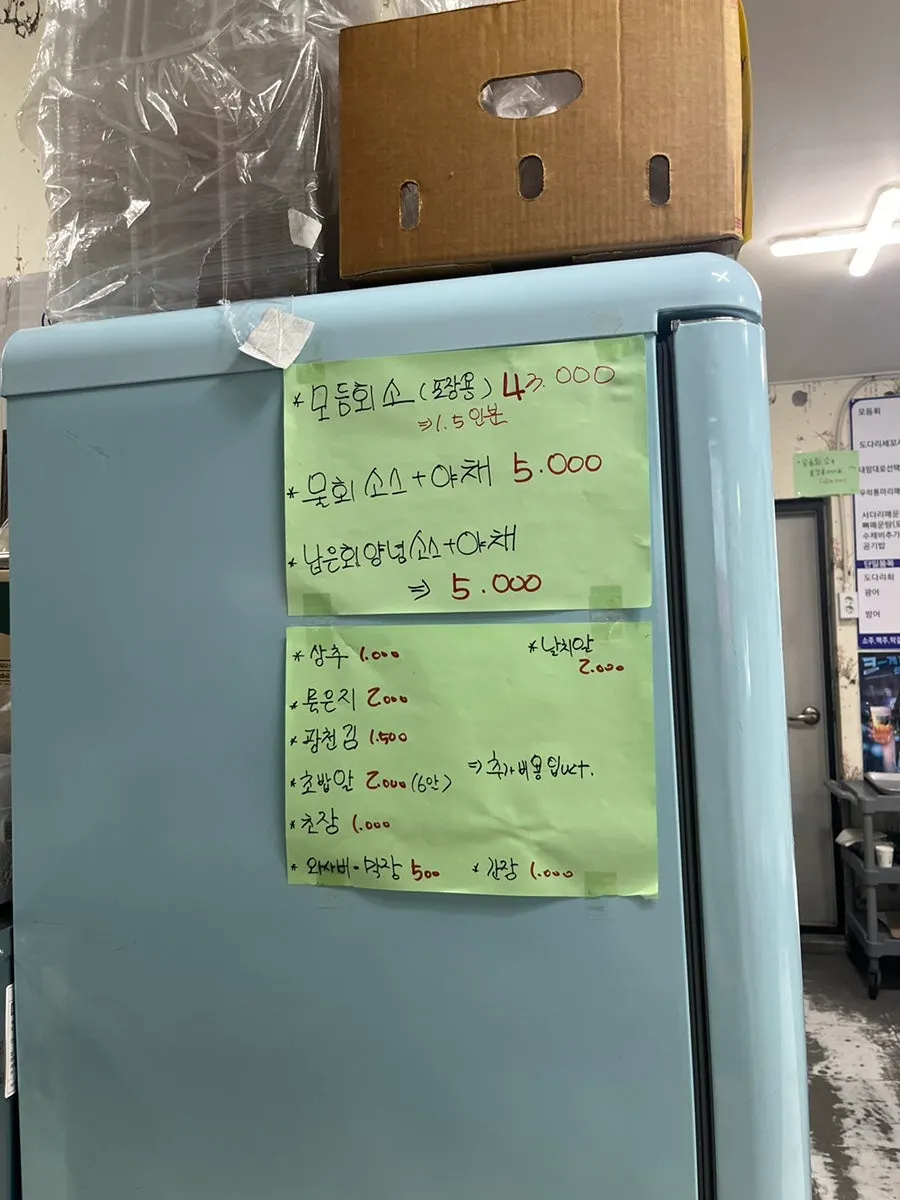 * 모듬회 소 (포장용) 43.000
⇒1.5인분
* 물회 소스 + 야채 5.000
* 남은회양념소스+야채
⇒ 5.000
* 상추 1.000
* 날치알
2.000
* 묵은지 2000
* 광천김 1.500
* 초밥알 2000 (6알)
⇒ 추가비용입니다.
* 초장 1.000
* 와사비 - 막장 500
* 간장 1.000
모듬회
도다리세꼬시
내맘대로선택
우럭통마리매
서더리매운
뼈매운탕(포
수제비추가
공기밥
단일품목
도다리회
광어
방어
소주,맥주,막걸